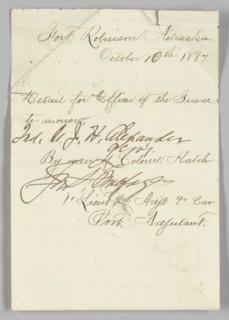 Fort Robinson Nebraska
October 10th 1887
Detail for Officer of the Guard
to-morrow
Lt. J. H. Alexander
9 Cav
By order of Colonel Hatch
1st Lieut & Adjt 9th Cav
Post Adjutant.